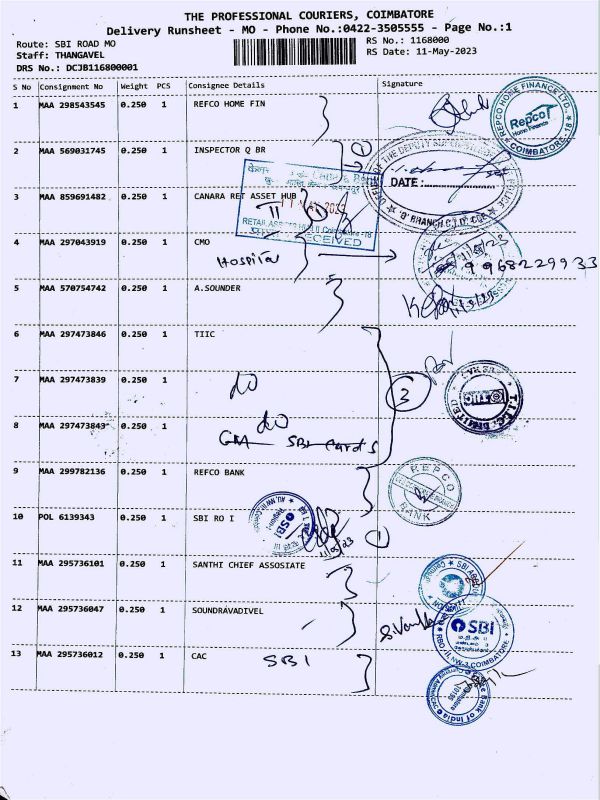 THE PROFESSIONAL COURIERS, COIMBATORE
Delivery Runsheet - MO - Phone No.:0422-3505555 - Page No.:1
Route: SBI ROAD MO
RS No.: 1168000
Staff: THANGAVEL
RS Date: 11-May-2023
DRS No.: DCJB116800001
S No Consignment No Weight PCS Consignee Details Signature
1 MAA 298543545 0.250 1 REFCO HOME FIN
REPCO HOME FINANCE LTD.,
Repco
Home Finance
COIMBATORE-18
2 MAA 569031745 0.250 1 INSPECTOR Q BR
DATE :
3 MAA 859691482 0.250 1 CANARA RET ASSET HUB
RECEIVED
4 MAA 297043919 0.250 1 CMO
Hospital
9968229933
5 MAA 570754742 0.250 1 A.SOUNDER
6 MAA 297473846 0.250 1 TIIC
7 MAA 297473839 0.250 1
do
TIIC
8 MAA 297473843 0.250 1
do
SBI Cards
9 MAA 299782136 0.250 1 REFCO BANK
REPCO
BANK
10 POL 6139343 0.250 1 SBI RO I
SBI
11 MAA 295736101 0.250 1 SANTHI CHIEF ASSOSIATE
12 MAA 295736047 0.250 1 SOUNDRAVADIVEL
SBI
13 MAA 295736012 0.250 1 CAC
SBI